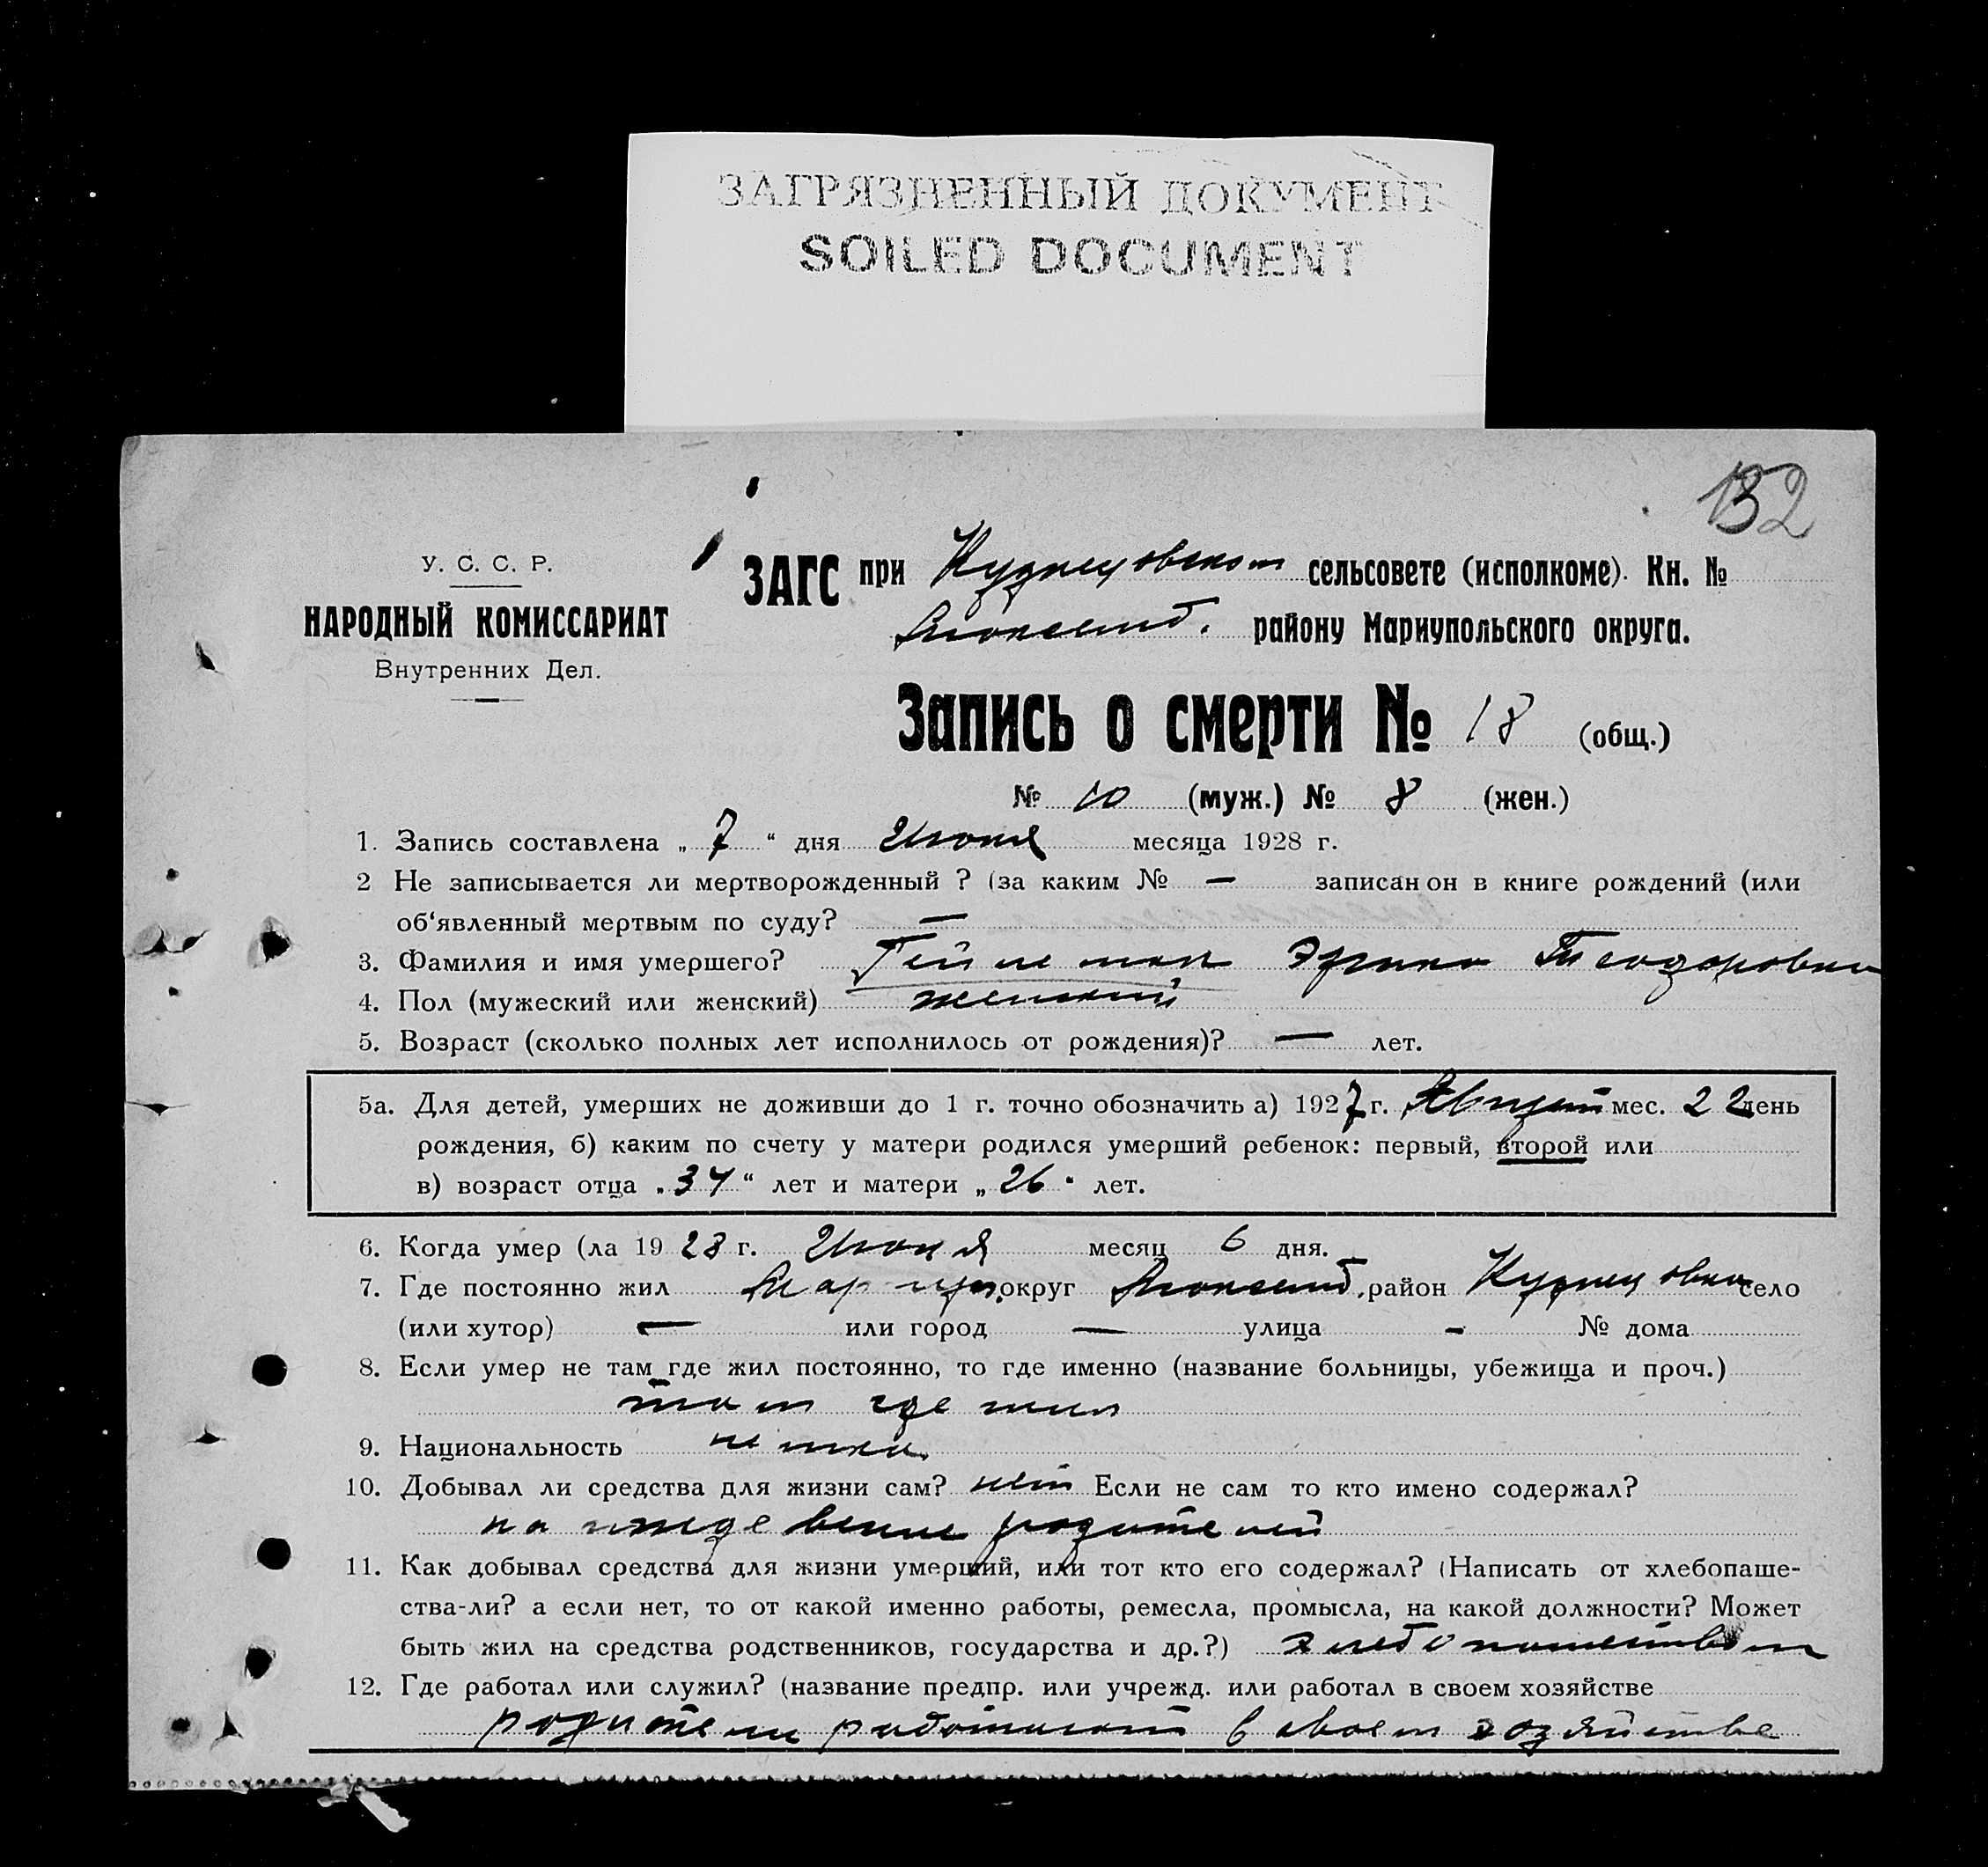 ЗАГРЯЗНЕННЫЙ ДОКУМЕНТ
SOILED DOCUMENT
132
У. С. С. Р.
НАРОДНЫЙ КОМИССАРИАТ
Внутренних Дел.
ЗАГС при Кузнецовском сельсовете (исполкоме). Кн. №
району Мариупольского округа.
Запись о смерти № 18 (общ.)
№ 10 (муж.) № 8 (жен.)
1. Запись составлена „ 7 “ дня Июня месяца 1928 г.
2 Не записывается ли мертворожденный ? (за каким № — записан он в книге рождений (или
об‘явленный мертвым по суду? —
3. Фамилия и имя умершего? Эрика Теодоровна
4. Пол (мужеский или женский) женский
5. Возраст (сколько полных лет исполнилось от рождения)? — лет.
5а. Для детей, умерших не доживши до 1 г. точно обозначить а) 1927 г. Август мес. 22 день
рождения, б) каким по счету у матери родился умерший ребенок: первый, второй или
в) возраст отца „ 34 “ лет и матери „ 26 “ лет.
6. Когда умер (ла 1928 г. Июня месяц 6 дня.
7. Где постоянно жил Мариуп. округ район Кузнецовка село
(или хутор) — или город — улица - № дома
8. Если умер не там где жил постоянно, то где именно (название больницы, убежища и проч.)
там где жил
9. Национальность немка
10. Добывал ли средства для жизни сам? нет Если не сам то кто имено содержал?
на иждевение родителей
11. Как добывал средства для жизни умерший, или тот кто его содержал? (Написать от хлебопаше-
ства-ли? а если нет, то от какой именно работы, ремесла, промысла, на какой должности? Может
быть жил на средства родственников, государства и др.?) хлебопашеством
12. Где работал или служил? (название предпр. или учрежд. или работал в своем хозяйстве
родители работают в своем хозяйстве